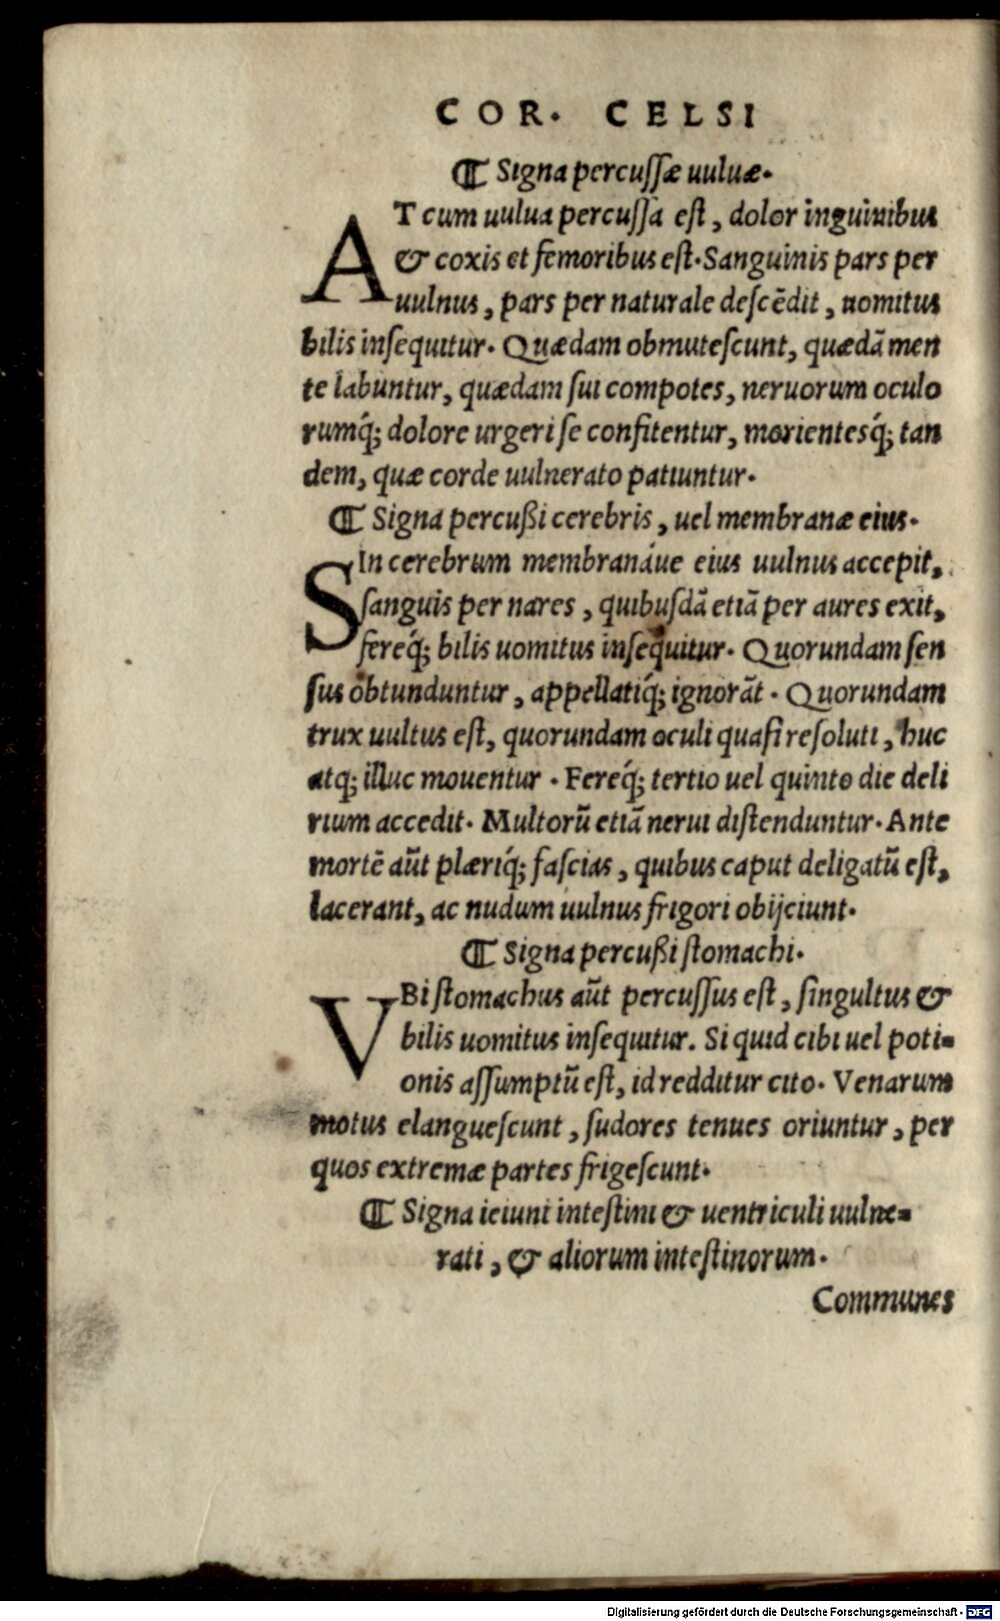 COR. CELSI
⁋ Signa percussæ uuluæ.
AT cum uulua percussa est, dolor inguinibus
& coxis et femoribus est. Sanguinis pars per
uulnus, pars per naturale descēdit, uomitus
bilis insequitur. Quædam obmutescunt, quædā men
te labuntur, quædam sui compotes, neruorum oculo
rumq́; dolore urgeri se confitentur, morientesq́; tan
dem, quæ corde uulnerato patiuntur.
⁋ Signa percußi cerebris, uel membranæ eius.
SIn cerebrum membranáue eius uulnus accepit,
sanguis per nares, quibusdā etiā per aures exit,
fereq́; bilis uomitus insequitur. Quorundam sen
sus obtunduntur, appellatiq́; ignorāt. Quorundam
trux uultus est, quorundam oculi quasi resoluti, huc
atq; illuc mouentur. Fereq́; tertio uel quinto die deli
rium accedit. Multorū etiā nerui distenduntur. Ante
mortē aūt plæriq́; fascias, quibus caput deligatū est,
lacerant, ac nudum uulnus frigori obijciunt.
⁋ Signa percußi stomachi.
VBi stomachus aūt percussus est, singultus &
bilis uomitus insequitur. Si quid cibi uel poti-
onis assumptū est, id redditur cito. Venarum
motus elanguescunt, sudores tenues oriuntur, per
quos extremæ partes frigescunt.
⁋ Signa ieiuni intestini & uentriculi uulne-
rati, & aliorum intestinorum.
Communes
Digitalisierung gefördert durch die Deutsche Forschungsgemeinschaft - DFG